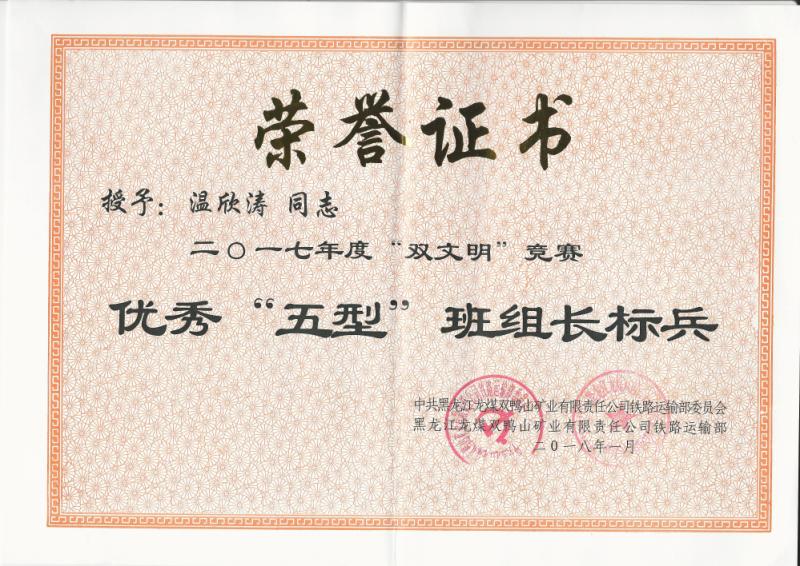 荣誉证书
授予：温欣涛 同志
二〇一七年度“双文明”竞赛
优秀“五型”班组长标兵
中共黑龙江龙煤双鸭山矿业有限责任公司铁路运输部委员会
黑龙江龙煤双鸭山矿业有限责任公司铁路运输部
二〇一八年一月